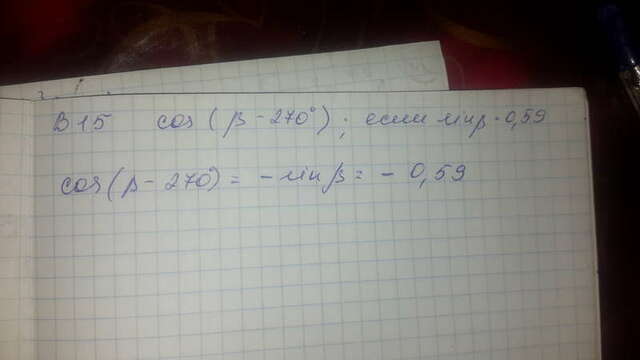 В15 cos(β - 270°); если sinβ = 0,59
cos(β - 270°) = - sinβ = - 0,59